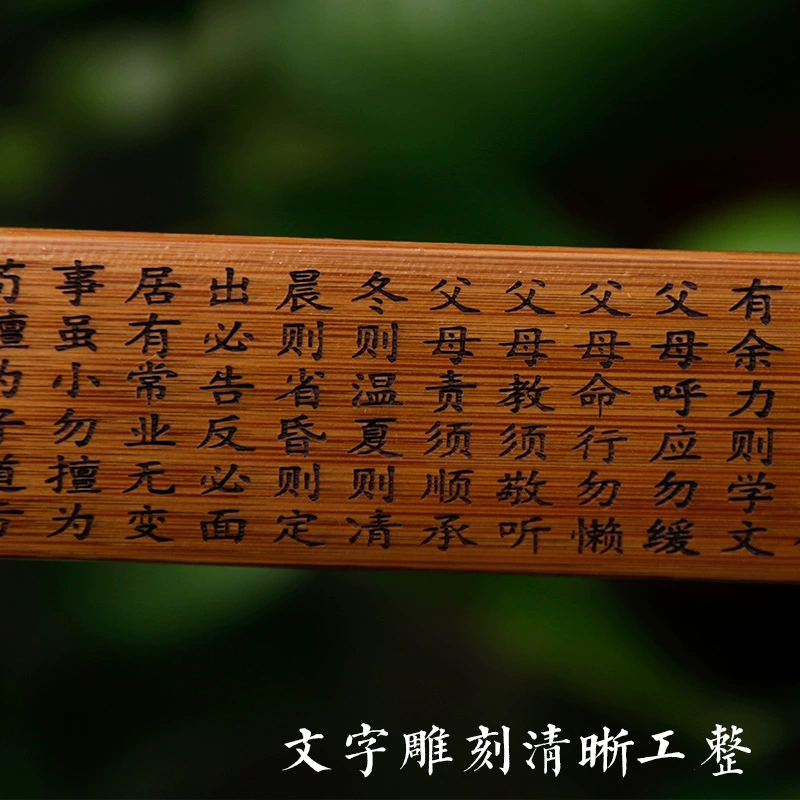 有余力则学文
父母呼应勿缓
父母命行勿懒
父母教须敬听
父母责须顺承
冬则温夏则凊
晨则省昏则定
出必告反必面
居有常业无变
事虽小勿擅为
苟擅为子道亏
文字雕刻清晰工整